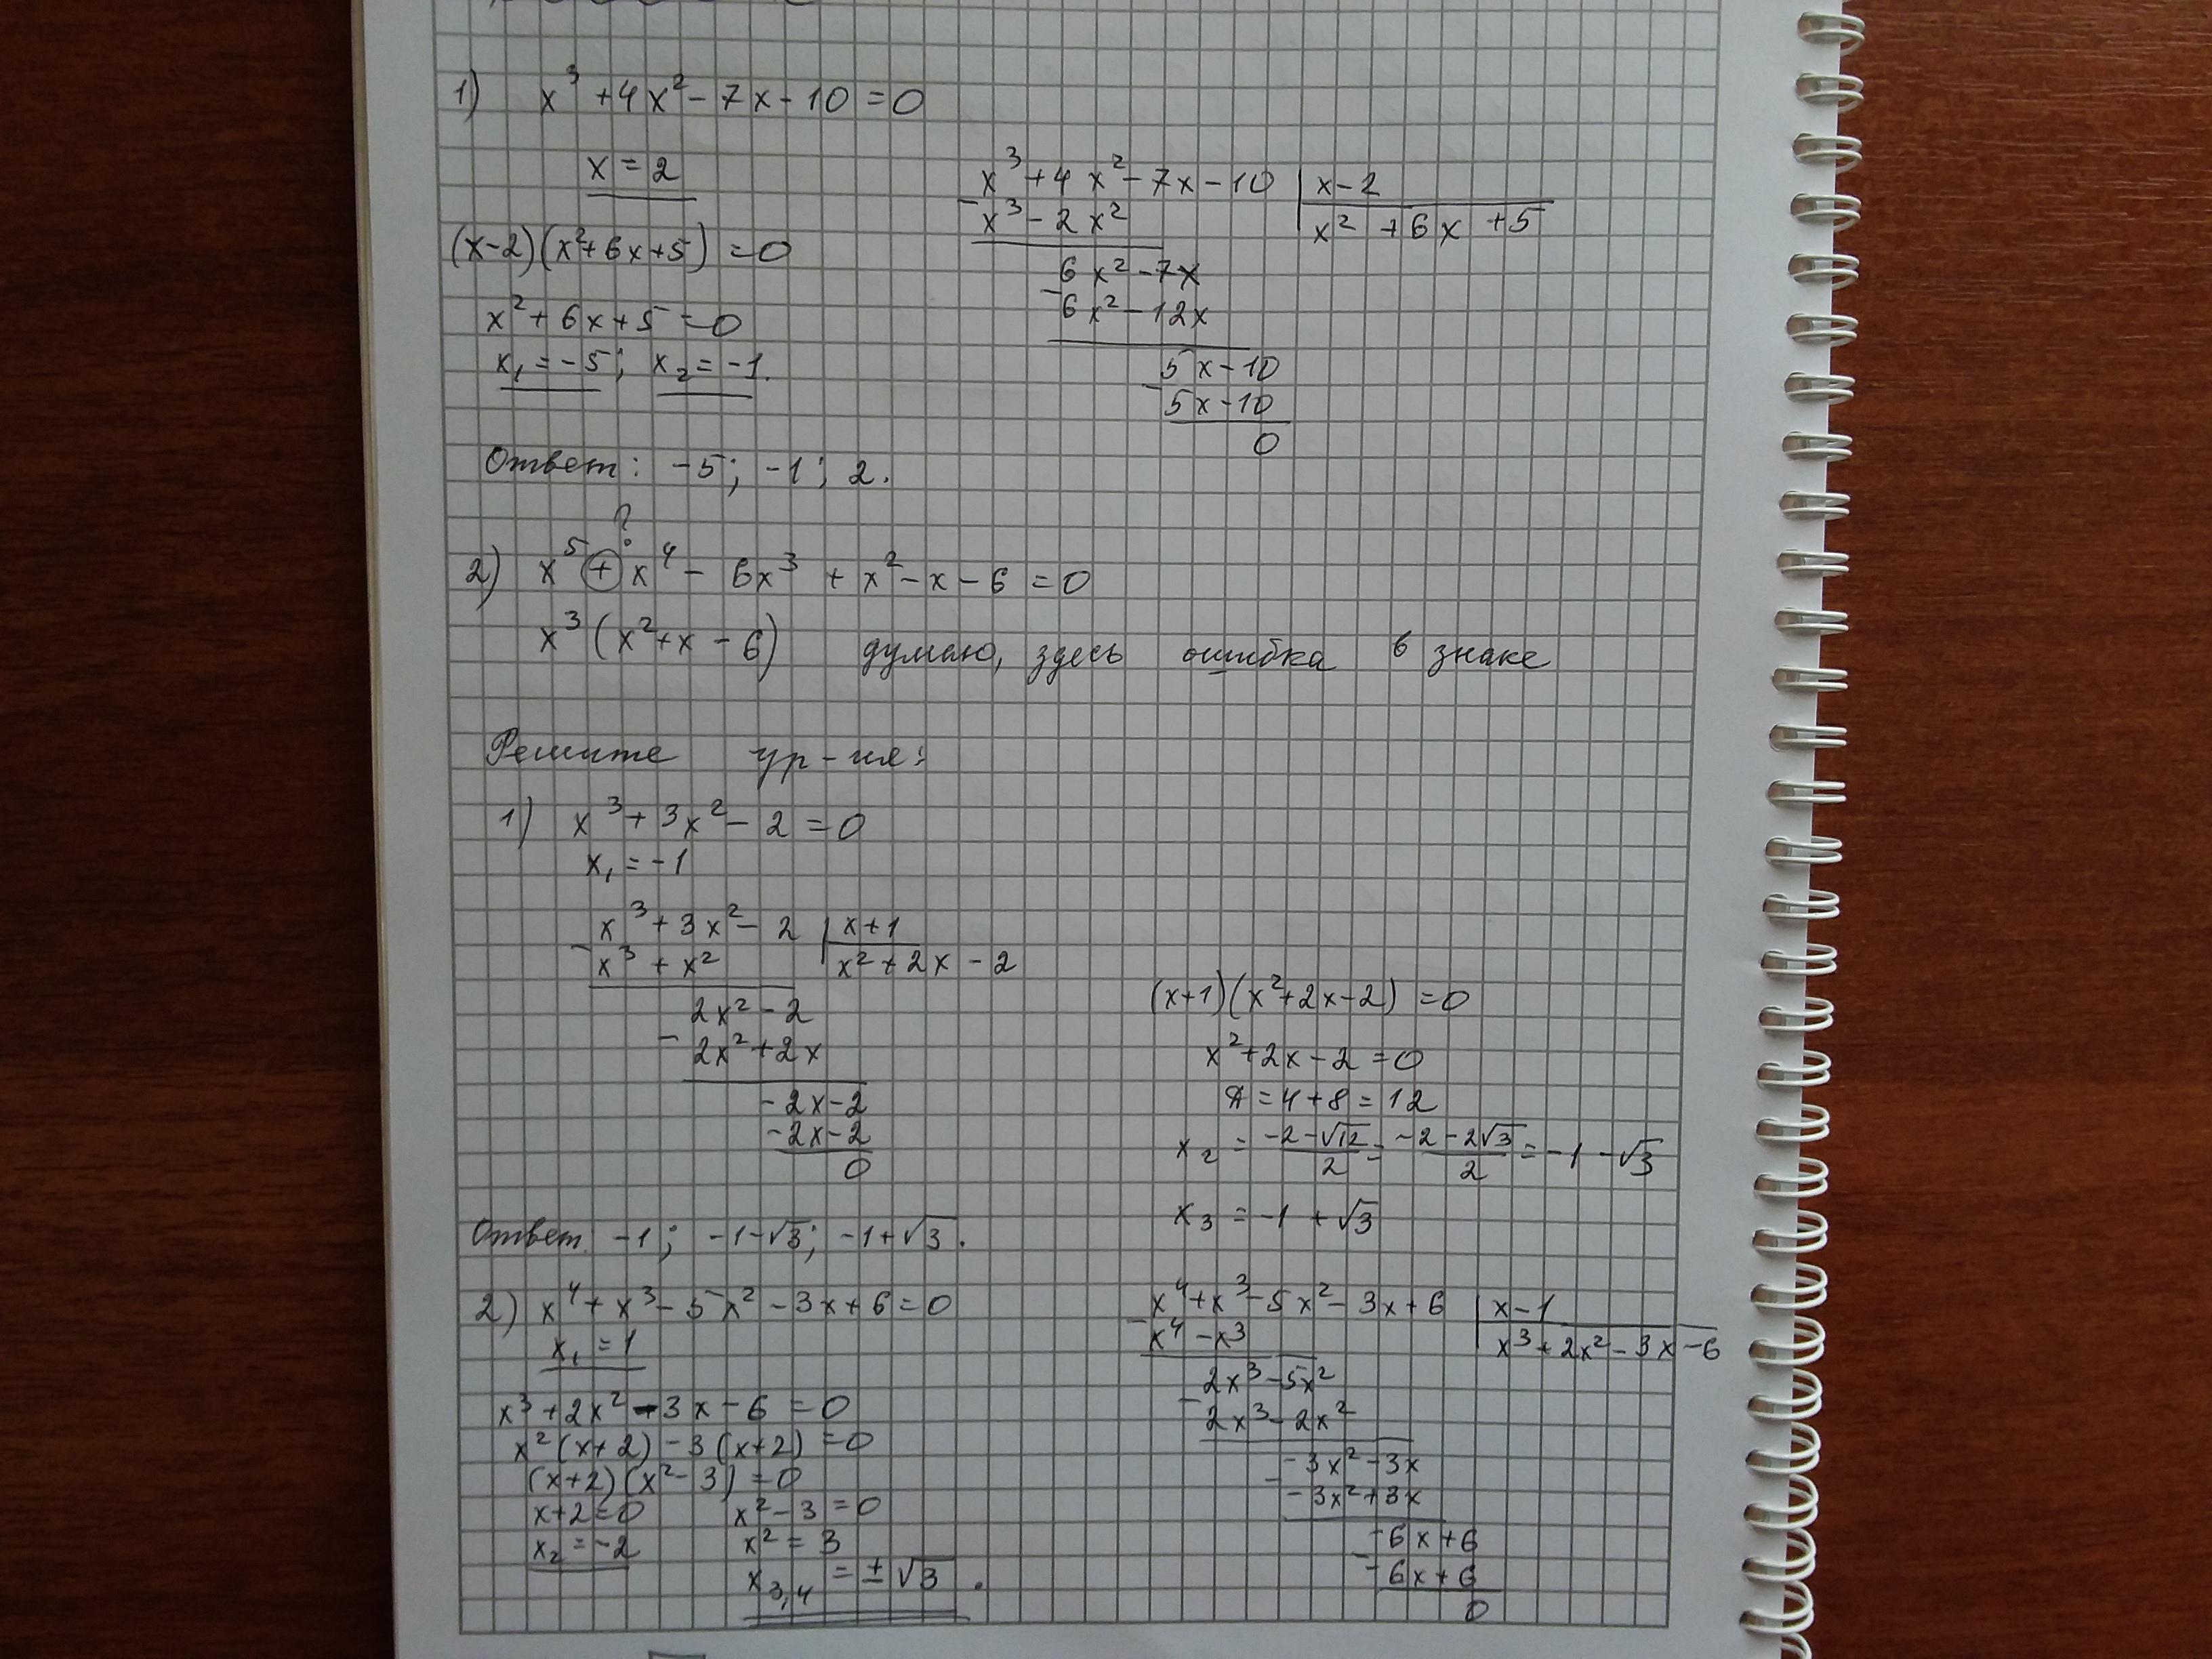 1) x³ + 4x² - 7x - 10 = 0
x = 2
(x-2)(x²+6x+5) = 0
x² + 6x + 5 = 0
x₁ = -5; x₂ = -1.
x³ + 4x² - 7x - 10 | x - 2
- x³ - 2x² | x² + 6x + 5
6x² - 7x
- 6x² - 12x
5x - 10
- 5x - 10
0
Ответ: -5; -1; 2.
?
2) x⁵ + x⁴ - 6x³ + x² - x - 6 = 0
x³ (x² + x - 6) думаю, здесь ошибка в знаке
Решите ур-ия:
1) x³ + 3x² - 2 = 0
x₁ = -1
x³ + 3x² - 2 | x + 1
- x³ + x² | x² + 2x - 2
2x² - 2
- 2x² + 2x
-2x - 2
-2x - 2
0
(x+1)(x²+2x-2) = 0
x² + 2x - 2 = 0
Д = 4 + 8 = 12
x₂ = (-2-√12)/2 = (-2-2√3)/2 = -1 - √3
x₃ = -1 + √3
Ответ: -1; -1-√3; -1+√3.
2) x⁴ + x³ - 5x² - 3x + 6 = 0
x₁ = 1
x³ + 2x² - 3x - 6 = 0
x²(x+2) - 3(x+2) = 0
(x+2)(x²-3) = 0
x+2=0 x² - 3 = 0
x₂ = -2 x² = 3
x₃,₄ = ±√3.
x⁴ + x³ - 5x² - 3x + 6 | x - 1
- x⁴ - x³ | x³ + 2x² - 3x - 6
2x³ - 5x²
- 2x³ - 2x²
-3x² - 3x
- -3x² + 3x
-6x + 6
- -6x + 6
0